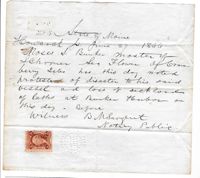 State of Maine
Hancock S June 27 1866
Moses S Bunker master of
Schooner Sea Flower of Cran
berry Isles has this day noted
protested of disaster to his said
vessel and loss of deckload
of Laths at Bunker Harbor on
this day - Before
Witness B M Sargent
Notary Public